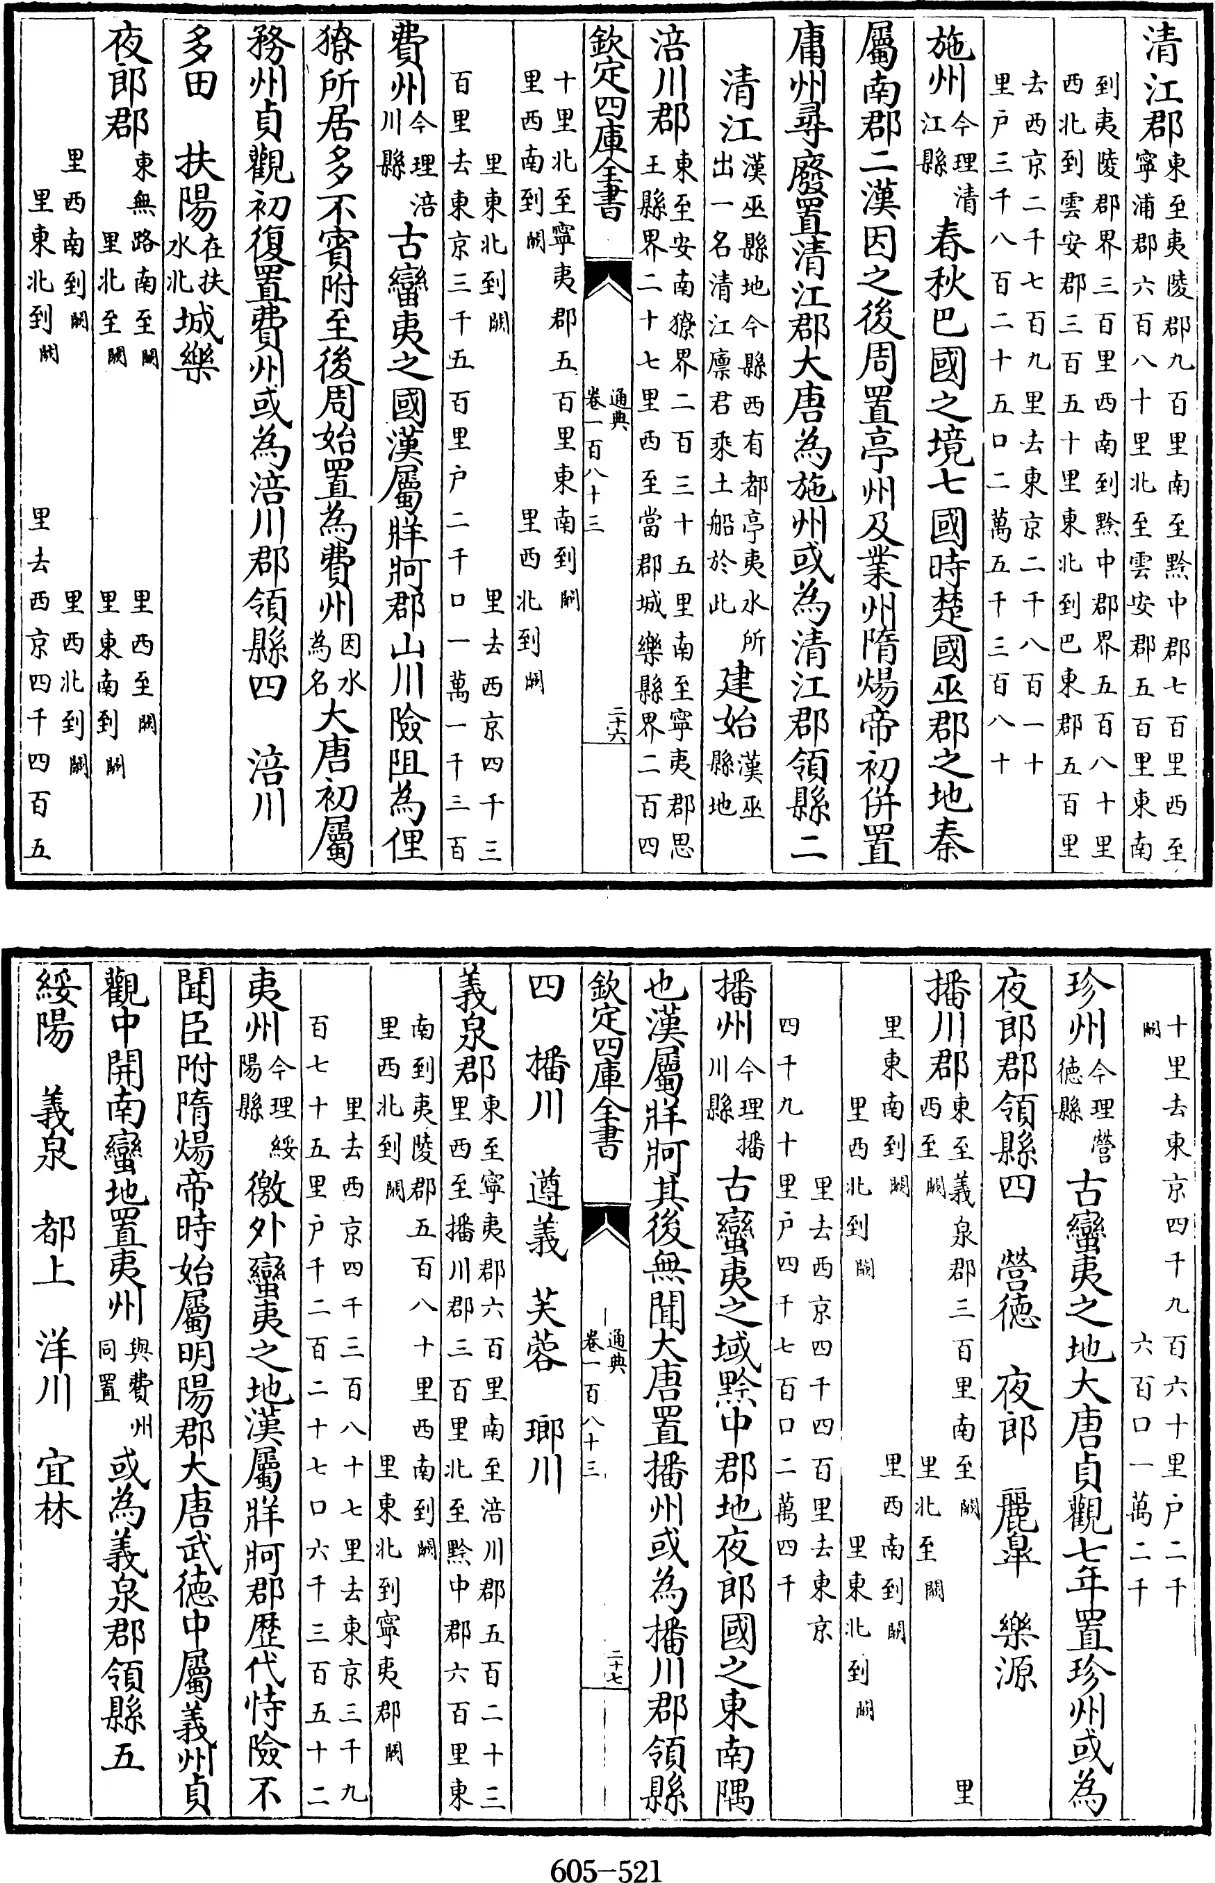 清江郡東至夷陵郡九百里南至黔中郡七百里西至
寧浦郡六百八十里北至雲安郡五百里東南
到夷陵郡界三百里西南到黔中郡界五百八十里
西北到雲安郡三百五十里東北到巴東郡五百里
去西京二千七百九里去東京二千八百一十
里户三千八百二十五口二萬五千三百八十
施州今理清江縣春秋巴國之境七國時楚國巫郡之地秦
屬南郡二漢因之後周置亭州及業州隋煬帝初併置
庸州尋廢置清江郡大唐為施州或為清江郡領縣二
清江漢巫縣地今縣西有都亭夷水所出一名清江廩君乘土船於此 建始漢巫縣地
涪川郡東至安南獠界二百三十五里南至寧夷郡思
王縣界二十七里西至當郡城樂縣界二百四
欽定四庫全書 通典 卷一百八十三 二十六
十里北至寧夷郡五百里東南到闕
里西南到闕 里西北到闕
里東北到闕 里去西京四千三
百里去東京三千五百里户二千口一萬一千三百
費州今理涪川縣古蠻夷之國漢屬牂牁郡山川險阻為俚
獠所居多不賓附至後周始置為費州因水為名大唐初屬
務州貞觀初復置費州或為涪川郡領縣四 涪川
多田 扶陽在扶水北 城樂
夜郎郡東無路南至闕 里西至闕
里北至闕 里東南到闕
里西南到闕 里西北到闕
里東北到闕 里去西京四千四百五
十里去東京四千九百六十里户二千
闕 六百口一萬二千
珍州今理營德縣古蠻夷之地大唐貞觀七年置珍州或為
夜郎郡領縣四 營德 夜郎 麗皋 樂源
播川郡東至義泉郡三百里南至闕 里
西至闕 里北至闕
里東南到闕 里西南到闕
里西北到闕 里東北到闕
里去西京四千四百里去東京
四千九十里户四千七百口二萬四千
播州今理播川縣古蠻夷之域黔中郡地夜郎國之東南隅
也漢屬牂牁其後無聞大唐置播州或為播川郡領縣
欽定四庫全書 通典 卷一百八十三 二十七
四 播川 遵義 芙蓉 瑯川
義泉郡東至寧夷郡六百里南至涪川郡五百二十三
里西至播川郡三百里北至黔中郡六百里東
南到夷陵郡五百八十里西南到闕
里西北到闕 里東北到寧夷郡闕
里去西京四千三百八十七里去東京三千九
百七十五里户千二百二十七口六千三百五十二
夷州今理綏陽縣徼外蠻夷之地漢屬牂牁郡歷代恃險不
聞臣附隋煬帝時始屬明陽郡大唐武德中屬義州貞
觀中開南蠻地置夷州與費州同置或為義泉郡領縣五
綏陽 義泉 都上 洋川 宜林
605-521